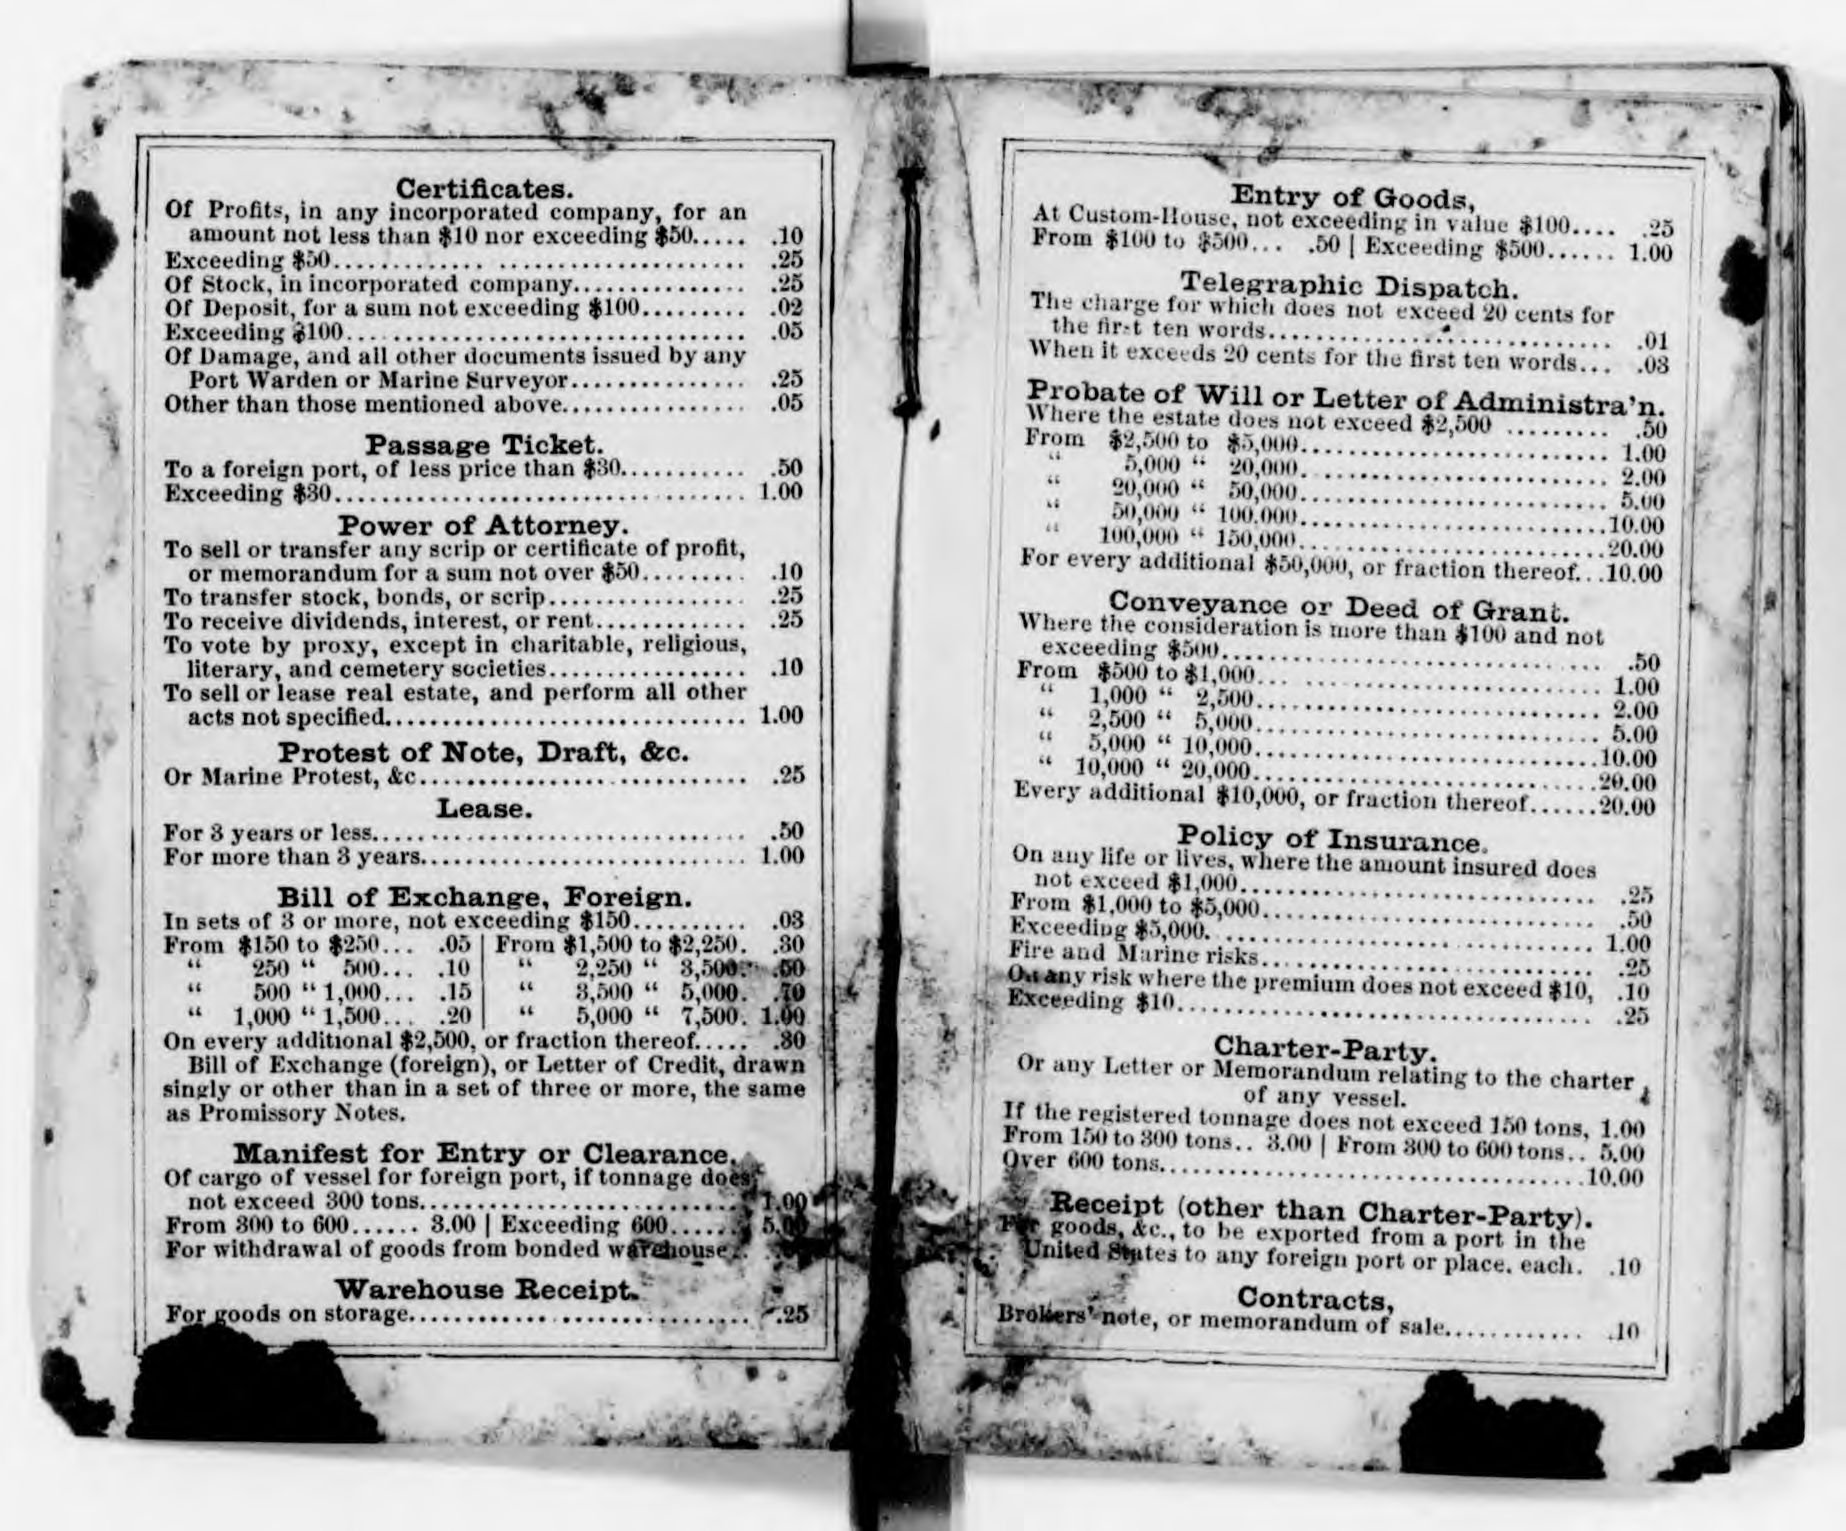 Certificates.
Of Profits, in any incorporated company, for an
amount not less than $10 nor exceeding $50..... .10
Exceeding $50.................................... .25
Of Stock, in incorporated company............... .25
Of Deposit, for a sum not exceeding $100......... .02
Exceeding $100................................... .05
Of Damage, and all other documents issued by any
Port Warden or Marine Surveyor............... .25
Other than those mentioned above................ .05
Passage Ticket.
To a foreign port, of less price than $30........... .50
Exceeding $30................................... 1.00
Power of Attorney.
To sell or transfer any scrip or certificate of profit,
or memorandum for a sum not over $50......... .10
To transfer stock, bonds, or scrip................. .25
To receive dividends, interest, or rent............. .25
To vote by proxy, except in charitable, religious,
literary, and cemetery societies................. .10
To sell or lease real estate, and perform all other
acts not specified............................... 1.00
Protest of Note, Draft, &c.
Or Marine Protest, &c............................. .25
Lease.
For 3 years or less................................ .50
For more than 3 years............................ 1.00
Bill of Exchange, Foreign.
In sets of 3 or more, not exceeding $150........... .03
From $150 to $250... .05 | From $1,500 to $2,250. .30
“ 250 “ 500... .10 | “ 2,250 “ 3,500. .50
“ 500 “ 1,000... .15 | “ 3,500 “ 5,000. .70
“ 1,000 “ 1,500... .20 | “ 5,000 “ 7,500. 1.00
On every additional $2,500, or fraction thereof..... .30
Bill of Exchange (foreign), or Letter of Credit, drawn
singly or other than in a set of three or more, the same
as Promissory Notes.
Manifest for Entry or Clearance.
Of cargo of vessel for foreign port, if tonnage does
not exceed 300 tons............................ 1.00
From 300 to 600...... 3.00 | Exceeding 600...... 5.00
For withdrawal of goods from bonded warehouse..
Warehouse Receipt.
For goods on storage............................... .25
Entry of Goods,
At Custom-House, not exceeding in value $100.... .25
From $100 to $500... .50 | Exceeding $500...... 1.00
Telegraphic Dispatch.
The charge for which does not exceed 20 cents for
the first ten words.............................. .01
When it exceeds 20 cents for the first ten words... .03
Probate of Will or Letter of Administra’n.
Where the estate does not exceed $2,500 ......... .50
From $2,500 to $5,000........................... 1.00
“ 5,000 “ 20,000........................... 2.00
“ 20,000 “ 50,000........................... 5.00
“ 50,000 “ 100,000...........................10.00
“ 100,000 “ 150,000...........................20.00
For every additional $50,000, or fraction thereof...10.00
Conveyance or Deed of Grant.
Where the consideration is more than $100 and not
exceeding $500.................................. .50
From $500 to $1,000............................. 1.00
“ 1,000 “ 2,500............................. 2.00
“ 2,500 “ 5,000............................. 5.00
“ 5,000 “ 10,000.............................10.00
“ 10,000 “ 20,000.............................20.00
Every additional $10,000, or fraction thereof......20.00
Policy of Insurance.
On any life or lives, where the amount insured does
not exceed $1,000............................... .25
From $1,000 to $5,000............................. .50
Exceeding $5,000................................ 1.00
Fire and Marine risks............................. .25
On any risk where the premium does not exceed $10, .10
Exceeding $10.................................... .25
Charter-Party.
Or any Letter or Memorandum relating to the charter
of any vessel.
If the registered tonnage does not exceed 150 tons, 1.00
From 150 to 300 tons.. 3.00 | From 300 to 600 tons.. 5.00
Over 600 tons...................................10.00
Receipt (other than Charter-Party).
For goods, &c., to be exported from a port in the
United States to any foreign port or place, each. .10
Contracts,
Brokers’ note, or memorandum of sale............ .10